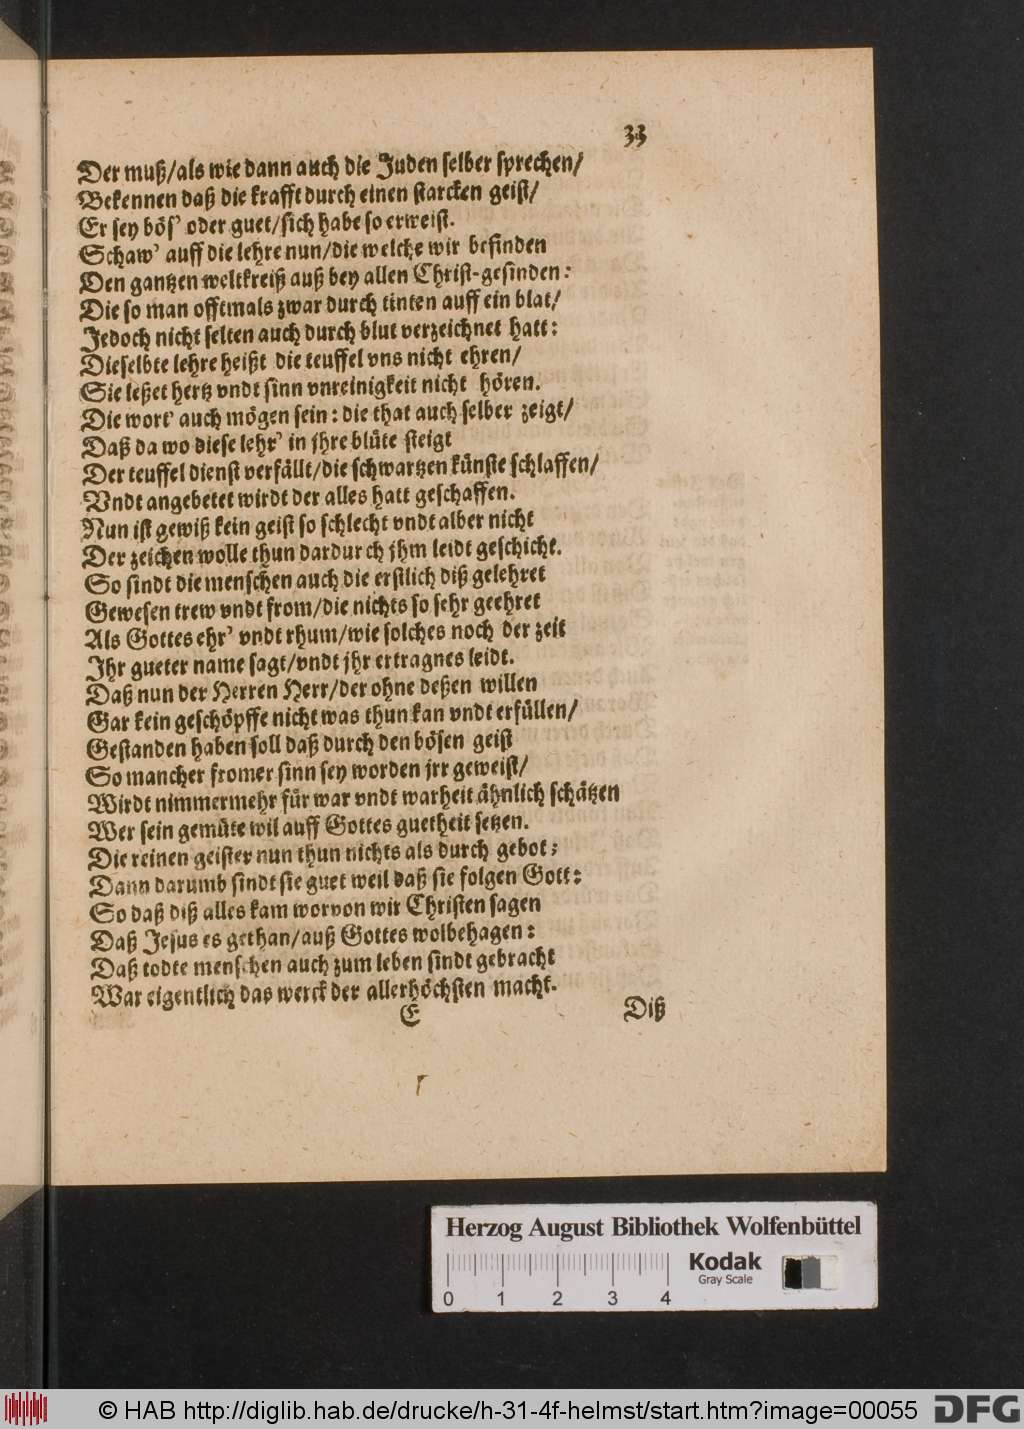 33
Der muß/als wie dann auch die Juden selber sprechen/
Bekennen daß die krafft durch einen starcken geist/
Er sey bös' oder guet/sich habe so erweist.
Schaw' auff die lehre nun/die welche wir befinden
Den gantzen weltkreiß auß bey allen Christ-gesinden:
Die so man offtmals zwar durch tinten auff ein blat/
Jedoch nicht selten auch durch blut verzeichnet hatt:
Dieselbte lehre heißt die teuffel vns nicht ehren/
Sie leßet hertz vndt sinn vnreinigkeit nicht hören.
Die wort' auch mögen sein: die that auch selber zeigt/
Daß da wo diese lehr' in jhre blüte steigt
Der teuffel dienst verfällt/die schwartzen künste schlaffen/
Vndt angebetet wirdt der alles hatt geschaffen.
Nun ist gewiß kein geist so schlecht vndt alber nicht
Der zeichen wolle thun dardurch jhm leidt geschicht.
So sindt die menschen auch die erstlich diß gelehret
Gewesen trew vndt from/die nichts so sehr geehret
Als Gottes ehr' vndt rhum/wie solches noch der zeit
Jhr gueter name sagt/vndt jhr ertragnes leidt.
Daß nun der Herren Herr/der ohne deßen willen
Gar kein geschöpffe nicht was thun kan vndt erfüllen/
Gestanden haben soll daß durch den bösen geist
So mancher fromer sinn sey worden jrr geweist/
Wirdt nimmermehr für war vndt warheit ähnlich schätzen
Wer sein gemüte wil auff Gottes guetheit setzen.
Die reinen geister nun thun nichts als durch gebot;
Dann darumb sindt sie guet weil daß sie folgen Gott:
So daß diß alles kam worvon wir Christen sagen
Daß Jesus es gethan/auß Gottes wolbehagen:
Daß todte menschen auch zum leben sindt gebracht
War eigentlich das werck der allerhöchsten macht.
E Diß
Herzog August Bibliothek Wolfenbüttel
Kodak
Gray Scale
0 1 2 3 4
© HAB http://diglib.hab.de/drucke/h-31-4f-helmst/start.htm?image=00055
DFG